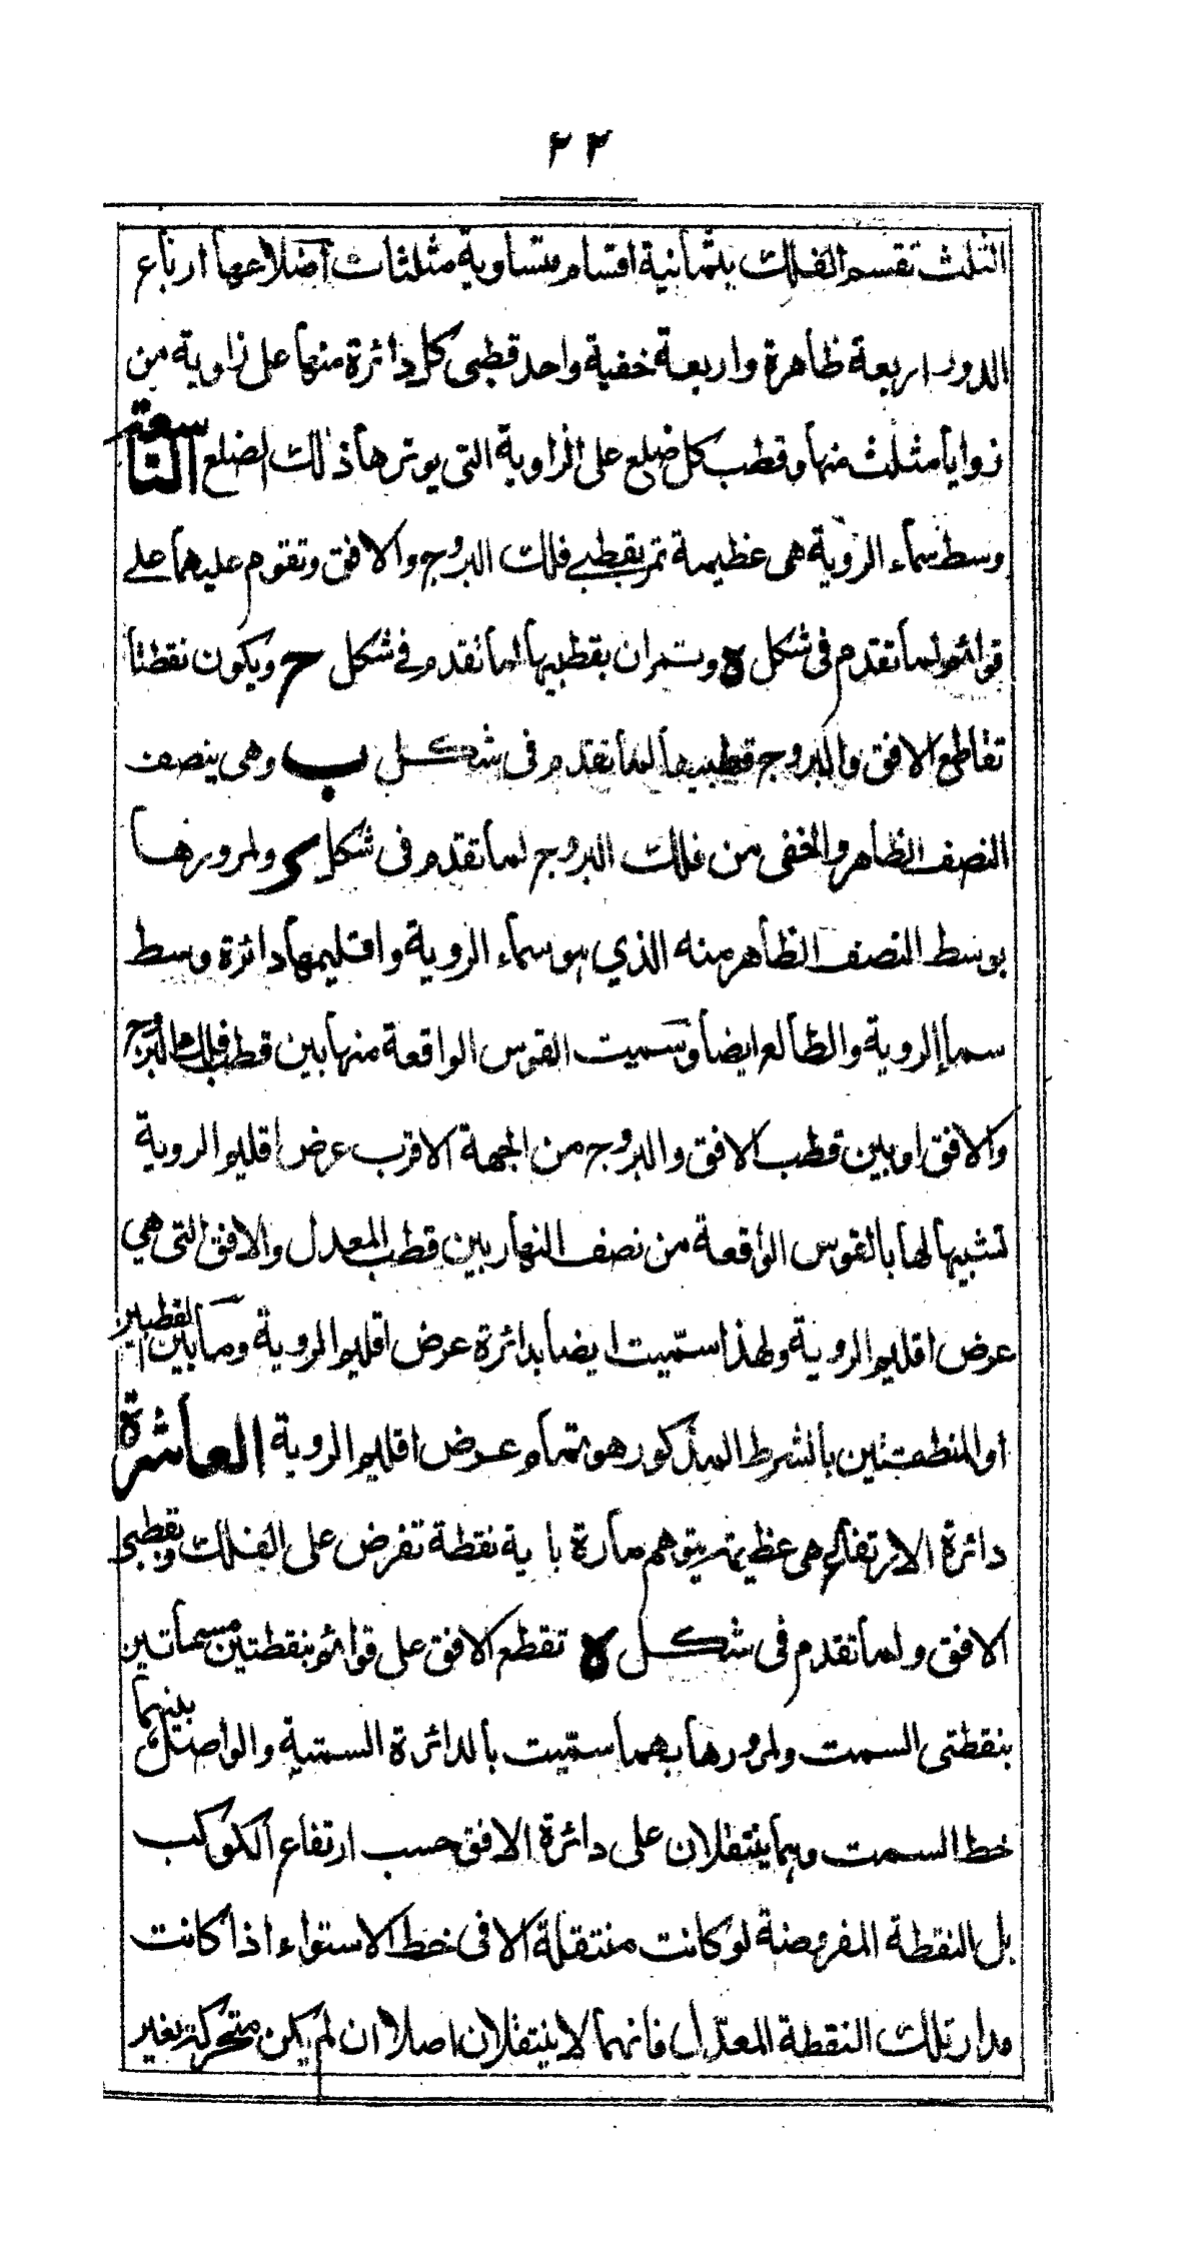 ٢٢
الثلث تقسم الفلك بثمانية اقسام متساوية مثلثات اضلاعها ارباع
الدور اربعة ظاهرة واربعة خفية واحد قطبى كل دائرة منها على زاوية من
زوايا مثلث منها وقطب كل ضلع على الزاوية التى يوترها ذلك الضلع التاسعة
وسط سماء الروية هى عظيمة تمر بقطبے فلك البروج والافق وتقوم عليهما علے
قوائم لما تقدم فى شكل ه وستمران بقطبيها لما تقدم فے شكل ح ويكون نقطتا
تقاطع الافق والبروج قطبيها لما تقدم فى شكل ب وهى ينصف
النصف الظاهر والخفى من فلك البروج لما تقدم فى شكل ولمرورها
بوسط النصف الظاهر منه الذي هو سماء الروية واقليمها دائرة وسط
سماء الروية والطالع ايضا وسميت القوس الواقعة منها بين قطب فلك البروج
والافق او بين قطب الافق والبروج من الجهة الاقرب عرض اقليم الروية
تشبيها لها بالقوس الواقعة من نصف النهار بين قطب المعدل والافق التى هي
عرض اقليم الروية ولهذا سمّيت ايضا بدائرة عرض اقليم الروية وما بين القطبين
او المنطقتين بالشرط المذكور هو تمام عرض اقليم الروية العاشرة
دائرة الارتفاع هى عظيمة يتوهم مارة باية نقطة تفرض على الفلك وبقطبى
الافق ولما تقدم فى شكل ه تقطع الافق على قوائم بنقطتين مسماتين
بنقطتى السمت ولمرورها بهما سمّيت بالدائرة السمتية والواصل بينهما
خط السمت وهما ينتقلان على دائرة الافق حسب ارتفاع الكوكب
بل النقطة المفروضة لو كانت منتقلة الا فى خط الاستواء اذا كانت
مدار تلك النقطة المعدّل فانهما لا ينتقلان اصلا ان لم يكن متحركة بغير